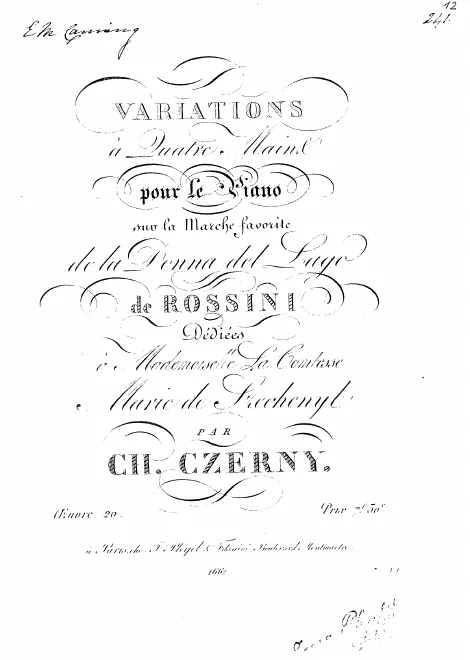 12
241.
VARIATIONS
à Quatre Mains
pour le Piano
sur la Marche favorite
de la Donna del Lago
de ROSSINI
Dédiées
à Mademoiselle La Comtesse
Marie de Szechenyi
PAR
CH. CZERNY.
Œuvre 20.
Prix 7f 50c
à Paris, chez I. Pleyel & Fils aîné, Boulevard Montmartre
1662